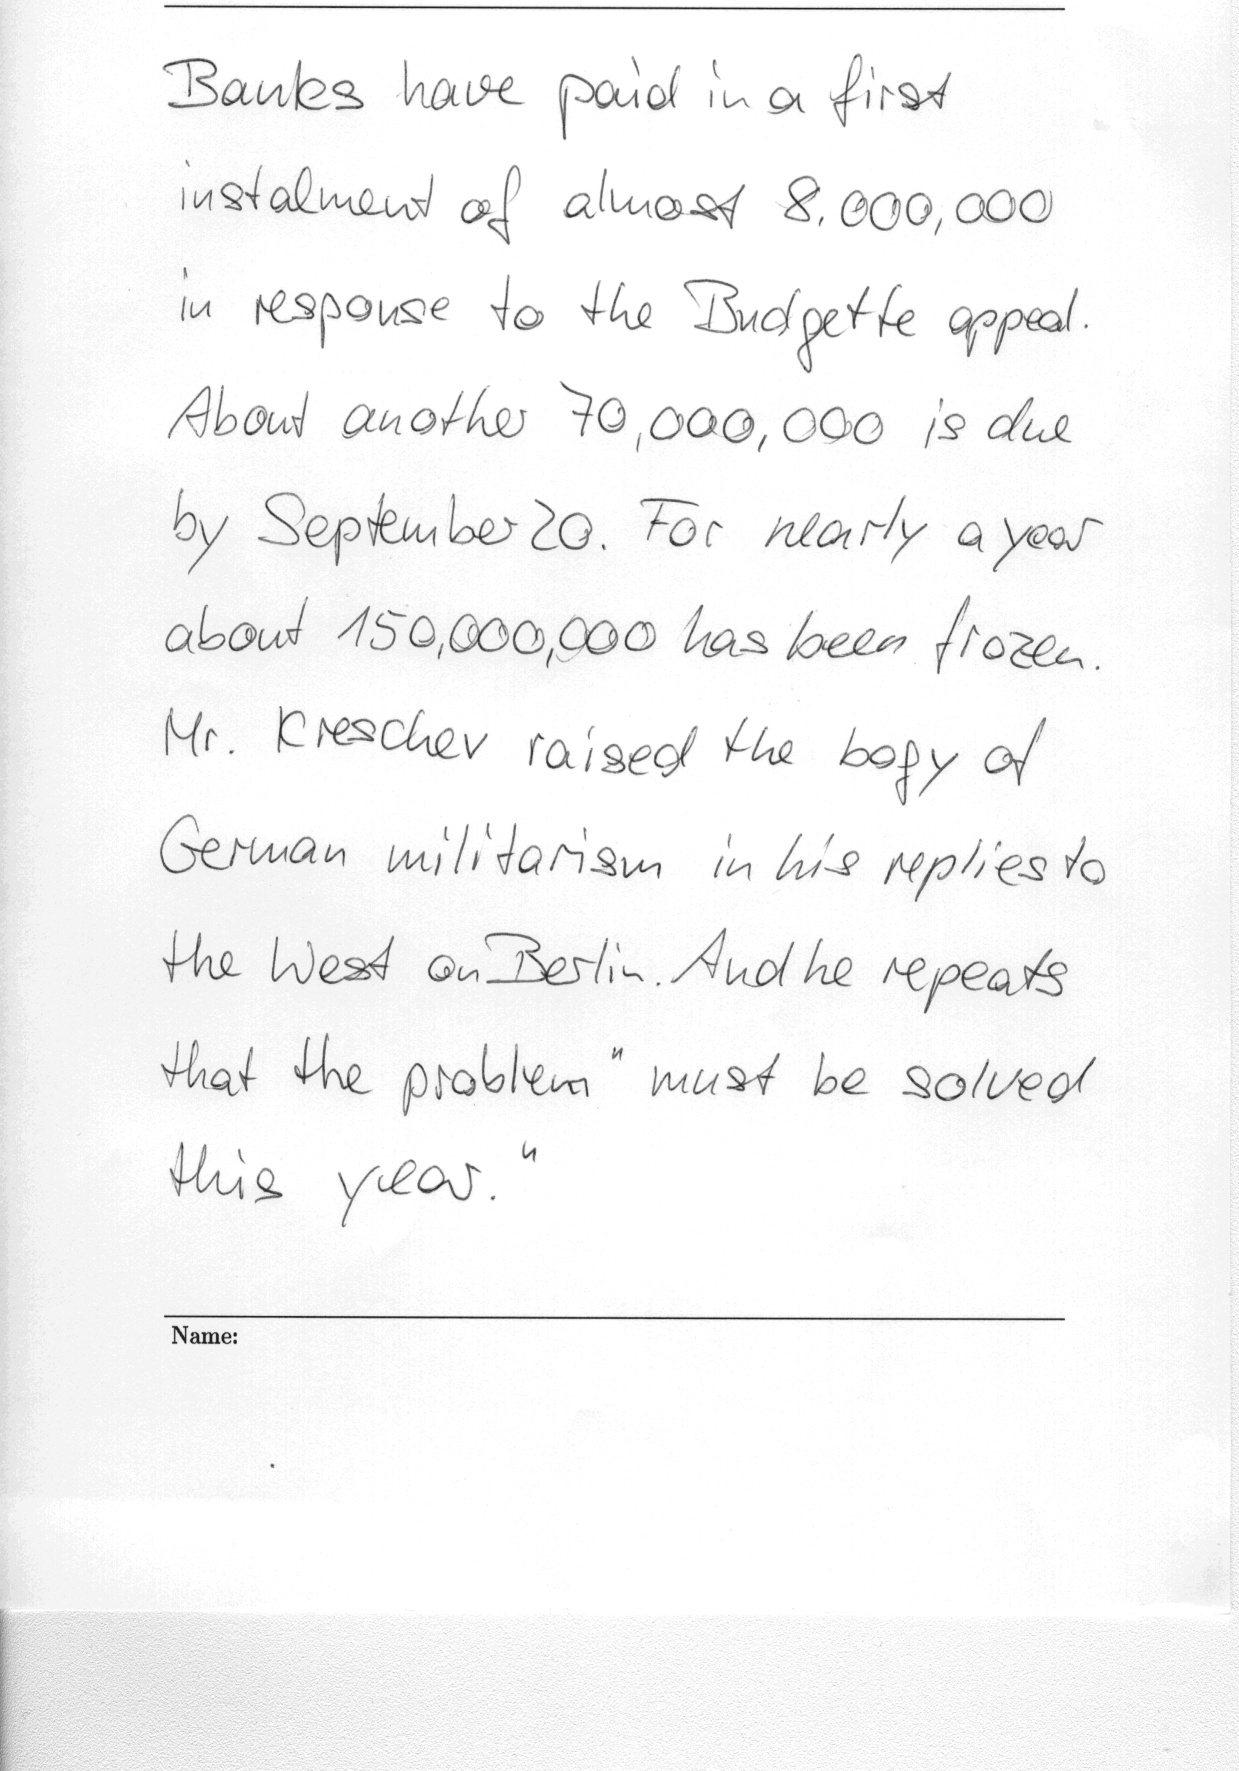 Banks have paid in a first
instalment of almost 8.000,000
in response to the Budgette appeal.
About another 70,000,000 is due
by September 20. For nearly a year
about 150,000,000 has been frozen.
Mr. Kreschev raised the bogy of
German militarism in his replies to
the West on Berlin. And he repeats
that the problem "must be solved
this year."
Name: